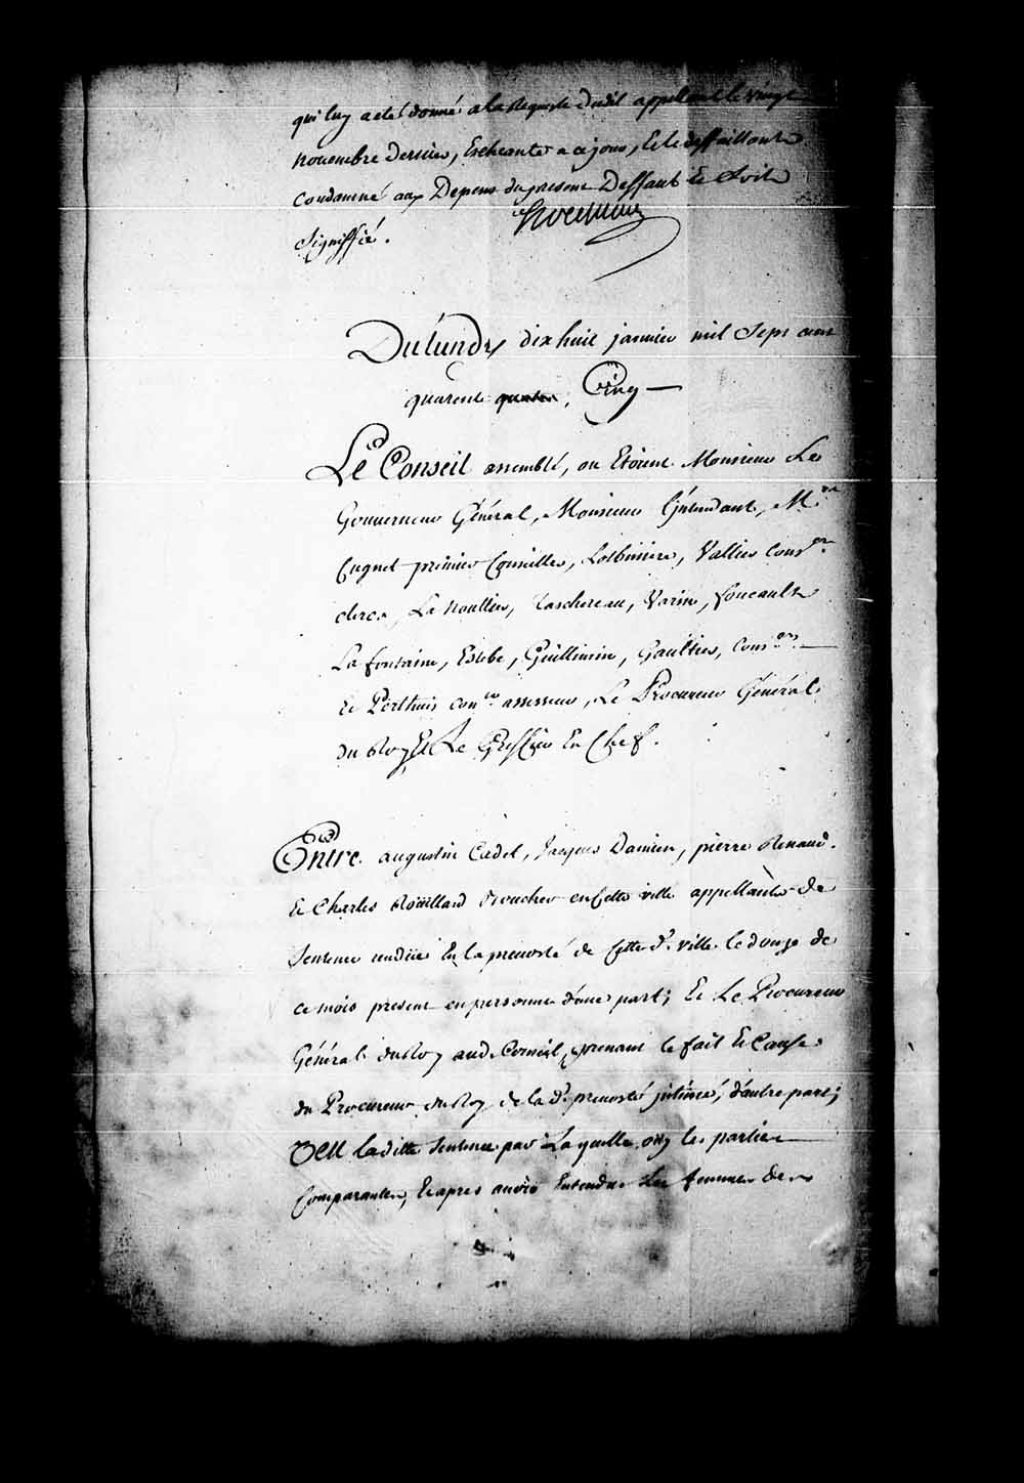 qui luy a eté donné a la Requeste dudit appellant le vingt
novembre dernier, Echeante a ce jour, Et le deffaillant
condamné aux Depens du present Deffaut Et Soit
Signiffié. hocquart
Du lundy dix huit janvier mil Sept cent
quarente quatre, Cinq —
Le Conseil assemblé, ou Etoient Monsieur Le
Gouverneur Général, Monsieur l'jntendant, Mrs
Cugnet premier Conseiller, Lotbiniere, Vallier Conser
clercs, La Noullier, Taschereau, Varin, foucault
La fontaine, Estebe, Guillimin, Gaultier, Consers. —
Et Perthuis conser assesseur, Le Procureur Général
du Roy Et Le Greffier En Chef.
Entre augustin Cadet, Jacques Damien, pierre Renaud.
Et Charles Roüillard Bouchers en Cette ville appellants de
Sentence rendüe En la prevosté de Cette de. ville le douze de
ce mois present en personnes d'une part; Et Le Procureur
Général du Roy aud. Conseil, prenant le fait Et Cause
du Procureur du Roy de la de. prevosté jntimé, d'autre part;
VEU laditte Sentence par Laquelle, oüy les parties
Comparantes, Et apres avoir Entendu Les femmes de